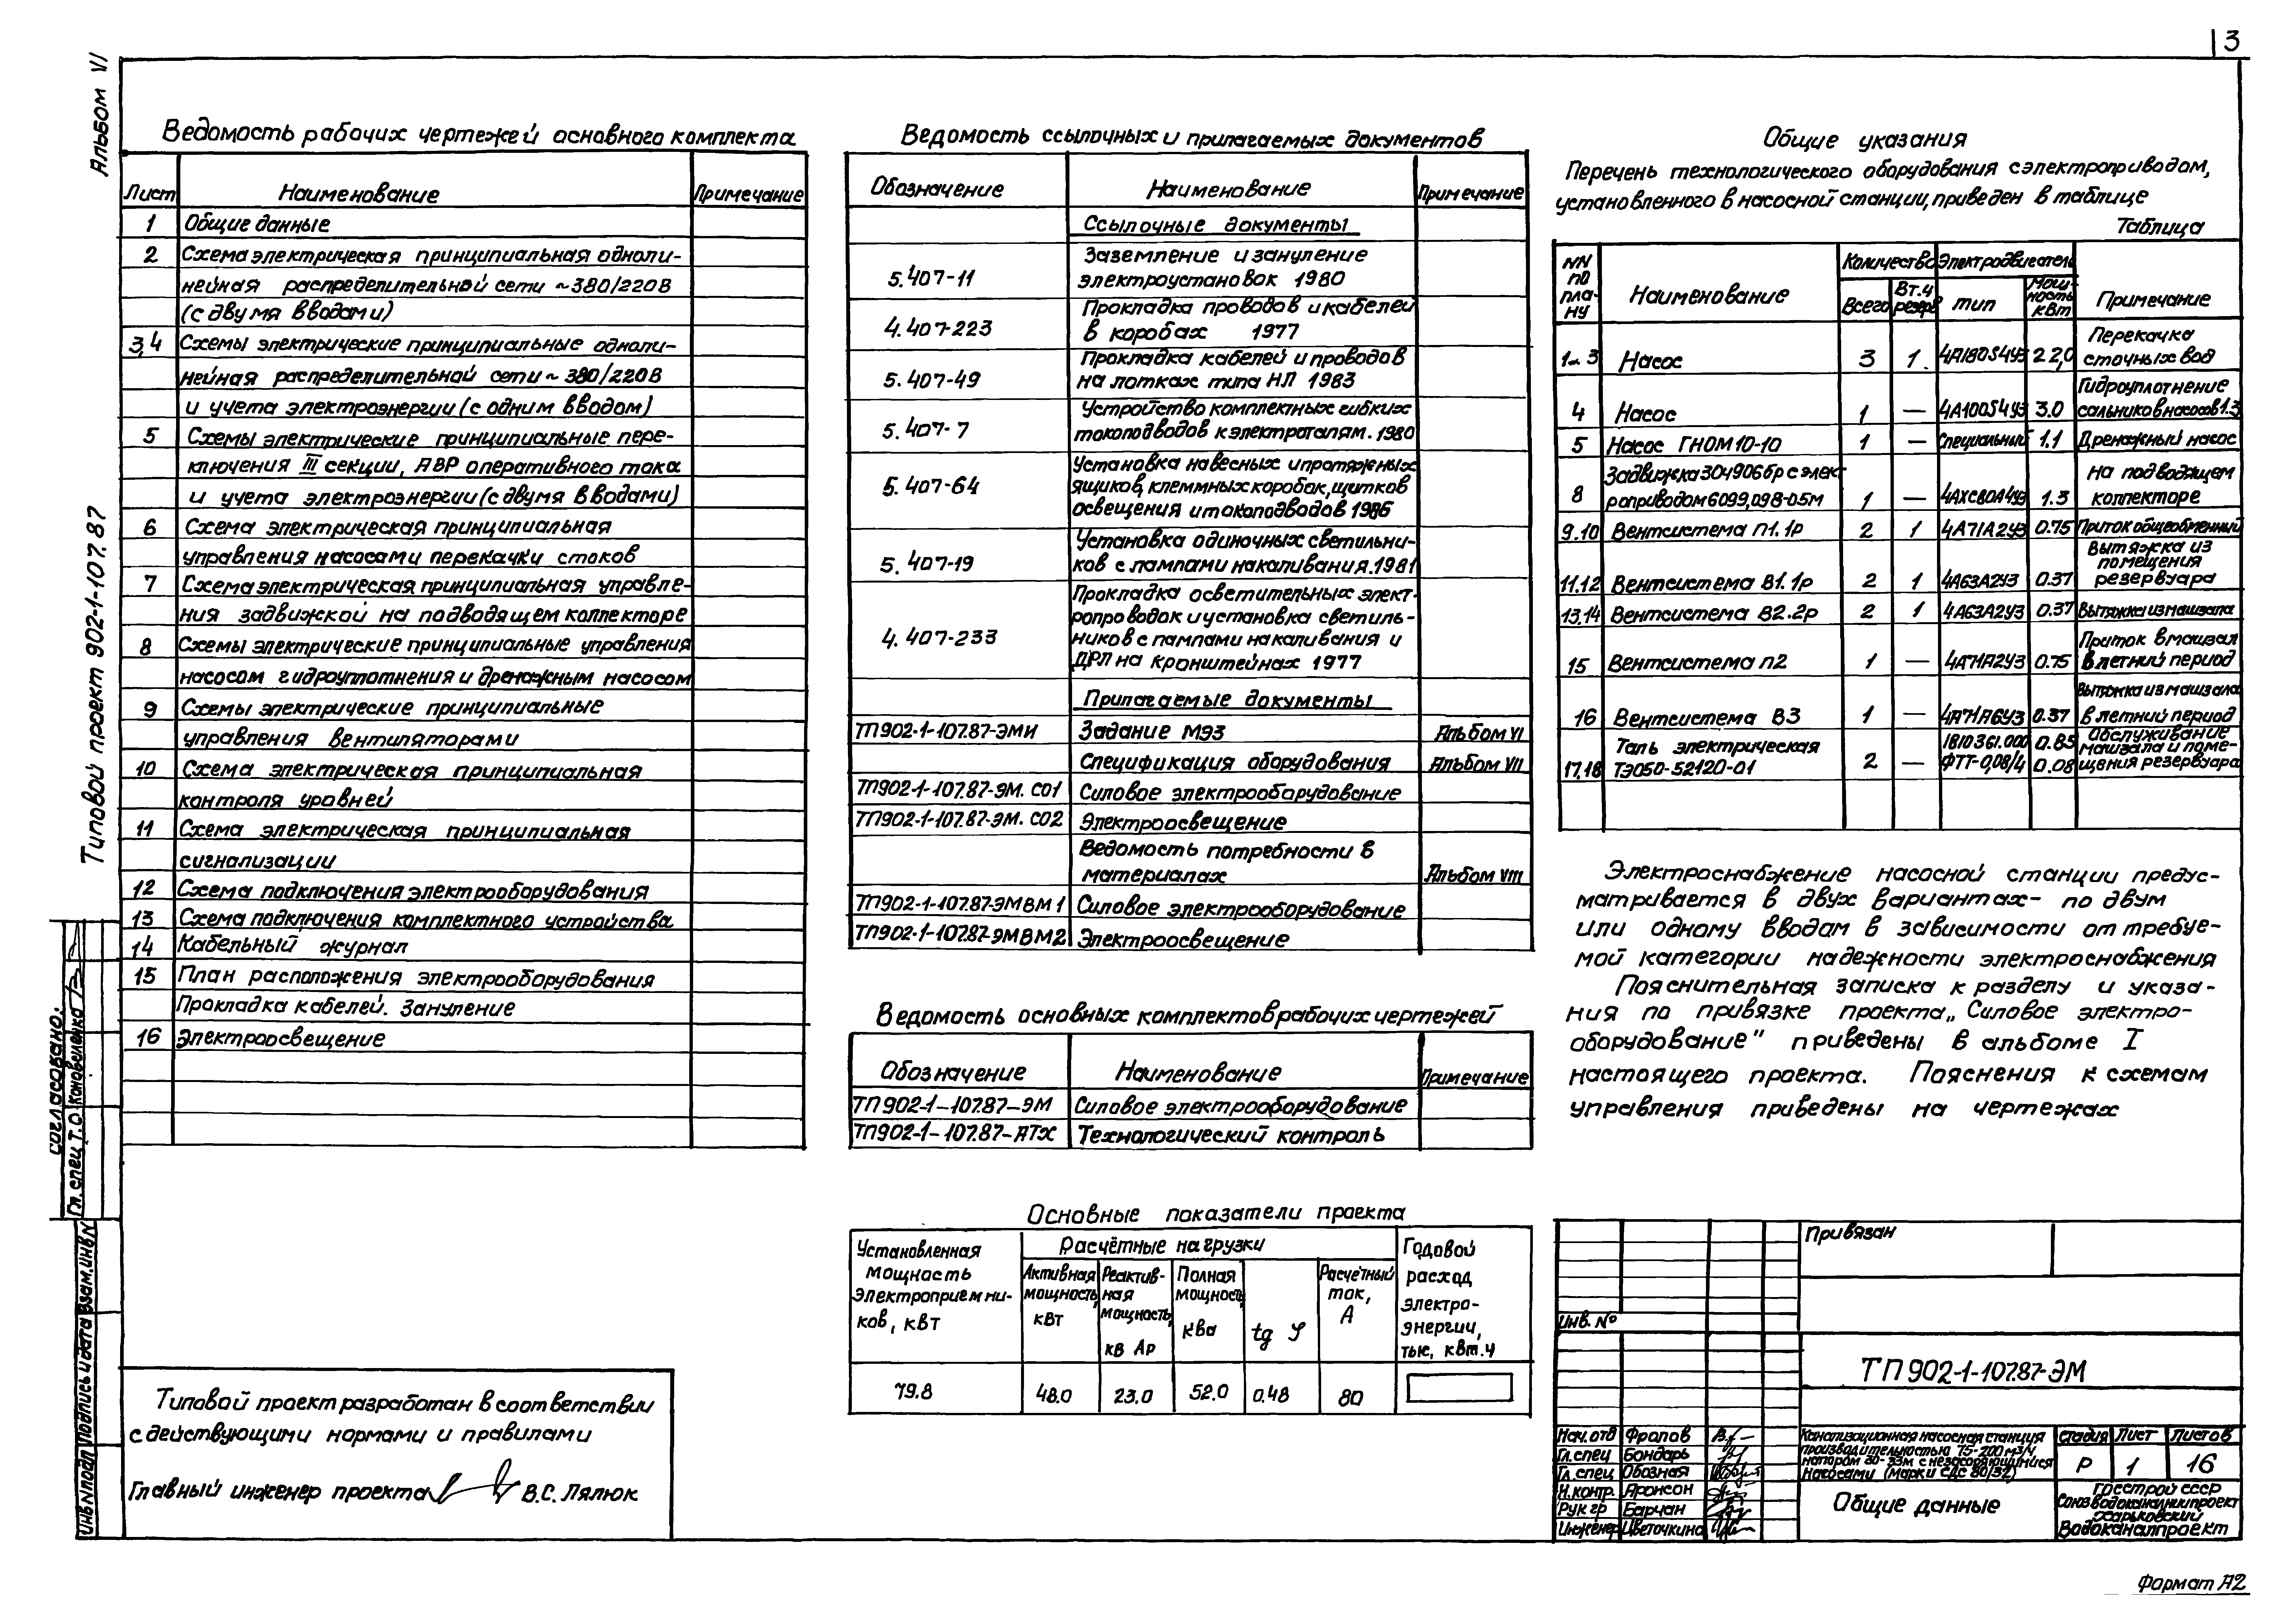 3
Альбом VI
Типовой проект 902-1-107.87
Ведомость рабочих чертежей основного комплекта
Лист Наименование Примечание
1 Общие данные
2 Схема электрическая принципиальная одноли-
нейная распределительной сети ~380/220В
(с двумя вводами)
3,4 Схемы электрические принципиальные одноли-
нейная распределительной сети ~ 380/220В
и учета электроэнергии (с одним вводом)
5 Схемы электрические принципиальные пере-
ключения III секции, АВР оперативного тока
и учета электроэнергии (с двумя вводами)
6 Схема электрическая принципиальная
управления насосами перекачки стоков
7 Схема электрическая принципиальная управле-
ния задвижкой на подводящем коллекторе
8 Схемы электрические принципиальные управления
насосом гидроуплотнения и дренажным насосом
9 Схемы электрические принципиальные
управления вентиляторами
10 Схема электрическая принципиальная
контроля уровней
11 Схема электрическая принципиальная
сигнализации
12 Схема подключения электрооборудования
13 Схема подключения комплектного устройства
14 Кабельный журнал
15 План расположения электрооборудования
Прокладка кабелей. Зануление
16 Электроосвещение
Типовой проект разработан в соответствии
с действующими нормами и правилами
Главный инженер проекта В.С. Лялюк
Согласовано:
Гл. спец Т.О. Коноваленко
Инв N подл Подпись и дата Взам. инв N
Ведомость ссылочных и прилагаемых документов
Обозначение Наименование Примечание
Ссылочные документы
5.407-11 Заземление и зануление
электроустановок 1980
4.407-223 Прокладка проводов и кабелей
в коробах 1977
5.407-49 Прокладка кабелей и проводов
на лотках типа НЛ 1983
5.407-7 Устройство комплектных гибких
токоподводов к электроталям. 1980
5.407-64 Установка навесных и протяжных
ящиков, клеммных коробок, щитков
освещения и токоподводов 1986
5.407-19 Установка одиночных светильни-
ков с лампами накаливания. 1981
4.407-233 Прокладка осветительных элект-
ропроводок и установка светиль-
ников с лампами накаливания и
ДРЛ на кронштейнах 1977
Прилагаемые документы
ТП902-1-107.87-ЭМИ Задание МЭЗ Альбом VI
Спецификация оборудования Альбом VII
ТП902-1-107.87-ЭМ. СО1 Силовое электрооборудование
ТП902-1-107.87-ЭМ. СО2 Электроосвещение
Ведомость потребности в
материалах Альбом VIII
ТП902-1-107.87-ЭМВМ1 Силовое электрооборудование
ТП902-1-107.87-ЭМВМ2 Электроосвещение
Ведомость основных комплектов рабочих чертежей
Обозначение Наименование Примечание
ТП902-1-107.87-ЭМ Силовое электрооборудование
ТП902-1-107.87-АТХ Технологический контроль
Основные показатели проекта
Установленная мощность электроприемни-ков, кВт Расчётные нагрузки Годовой расход электро-энергии, тыс, кВт.ч
Активная мощность, кВт Реактив-ная мощность, кв Ар Полная мощность, кВа tg φ Расчётный ток, А
79.8 48.0 23.0 52.0 0.48 80
Общие указания
Перечень технологического оборудования с электроприводом,
установленного в насосной станции, приведен в таблице
Таблица
NN по пла-ну Наименование Количество Электродвигатель Примечание
Всего Вт.ч резерв тип Мощ-ность кВт
1...3 Насос 3 1. 4А180S4У3 22,0 Перекачка сточных вод
4 Насос 1 — 4А100S4У3 3.0 Гидроуплотнение сальников насосов 1.3
5 Насос ГНОМ 10-10 1 — Специальный 1.1 Дренажный насос
8 Задвижка 30ч906бр с элект роприводом 6099,098-05М 1 — 4АХС80А4У3 1.3 На подводящем коллекторе
9.10 Вентсистема П1.1р 2 1 4А71А2У3 0.75 Приток общеобменный
11.12 Вентсистема В1.1р 2 1 4А63А2У3 0.37 Вытяжка из помещения резервуара
13.14 Вентсистема В2.2р 2 1 4А63А2У3 0.37 Вытяжка из машзала
15 Вентсистема П2 1 — 4А71А2У3 0.75 Приток в машзал в летний период
16 Вентсистема В3 1 — 4А71А6У3 0.37 Вытяжка из машзала в летний период
17.18 Таль электрическая ТЭ050-52120-01 2 — 1810361.000 ФТТ-0,08/4 0.85 0.08 Обслуживание машзала и поме-щения резервуара
Электроснабжение насосной станции предус-
матривается в двух вариантах- по двум
или одному вводам в зависимости от требуе-
мой категории надежности электроснабжения
Пояснительная записка к разделу и указа-
ния по привязке проекта „Силовое электро-
оборудование" приведены в альбоме I
настоящего проекта. Пояснения к схемам
управления приведены на чертежах
Привязан
Инв. №
ТП 902-1-107.87-ЭМ
Нач. отд Фролов
Гл. спец Бондарь
Гл. спец Обозная
Н. контр. Аронсон
Рук гр Барчан
Инженер Цветочкина
Канализационная насосная станция
производительностью 75-200 м³/ч
напором 30-33м с незасоряющимися
насосами (марки СДС 80/32)
Стадия Лист Листов
Р 1 16
Общие данные
Госстрой СССР
Союзводоканалниипроект
Харьковский
Водоканалпроект
Формат А2